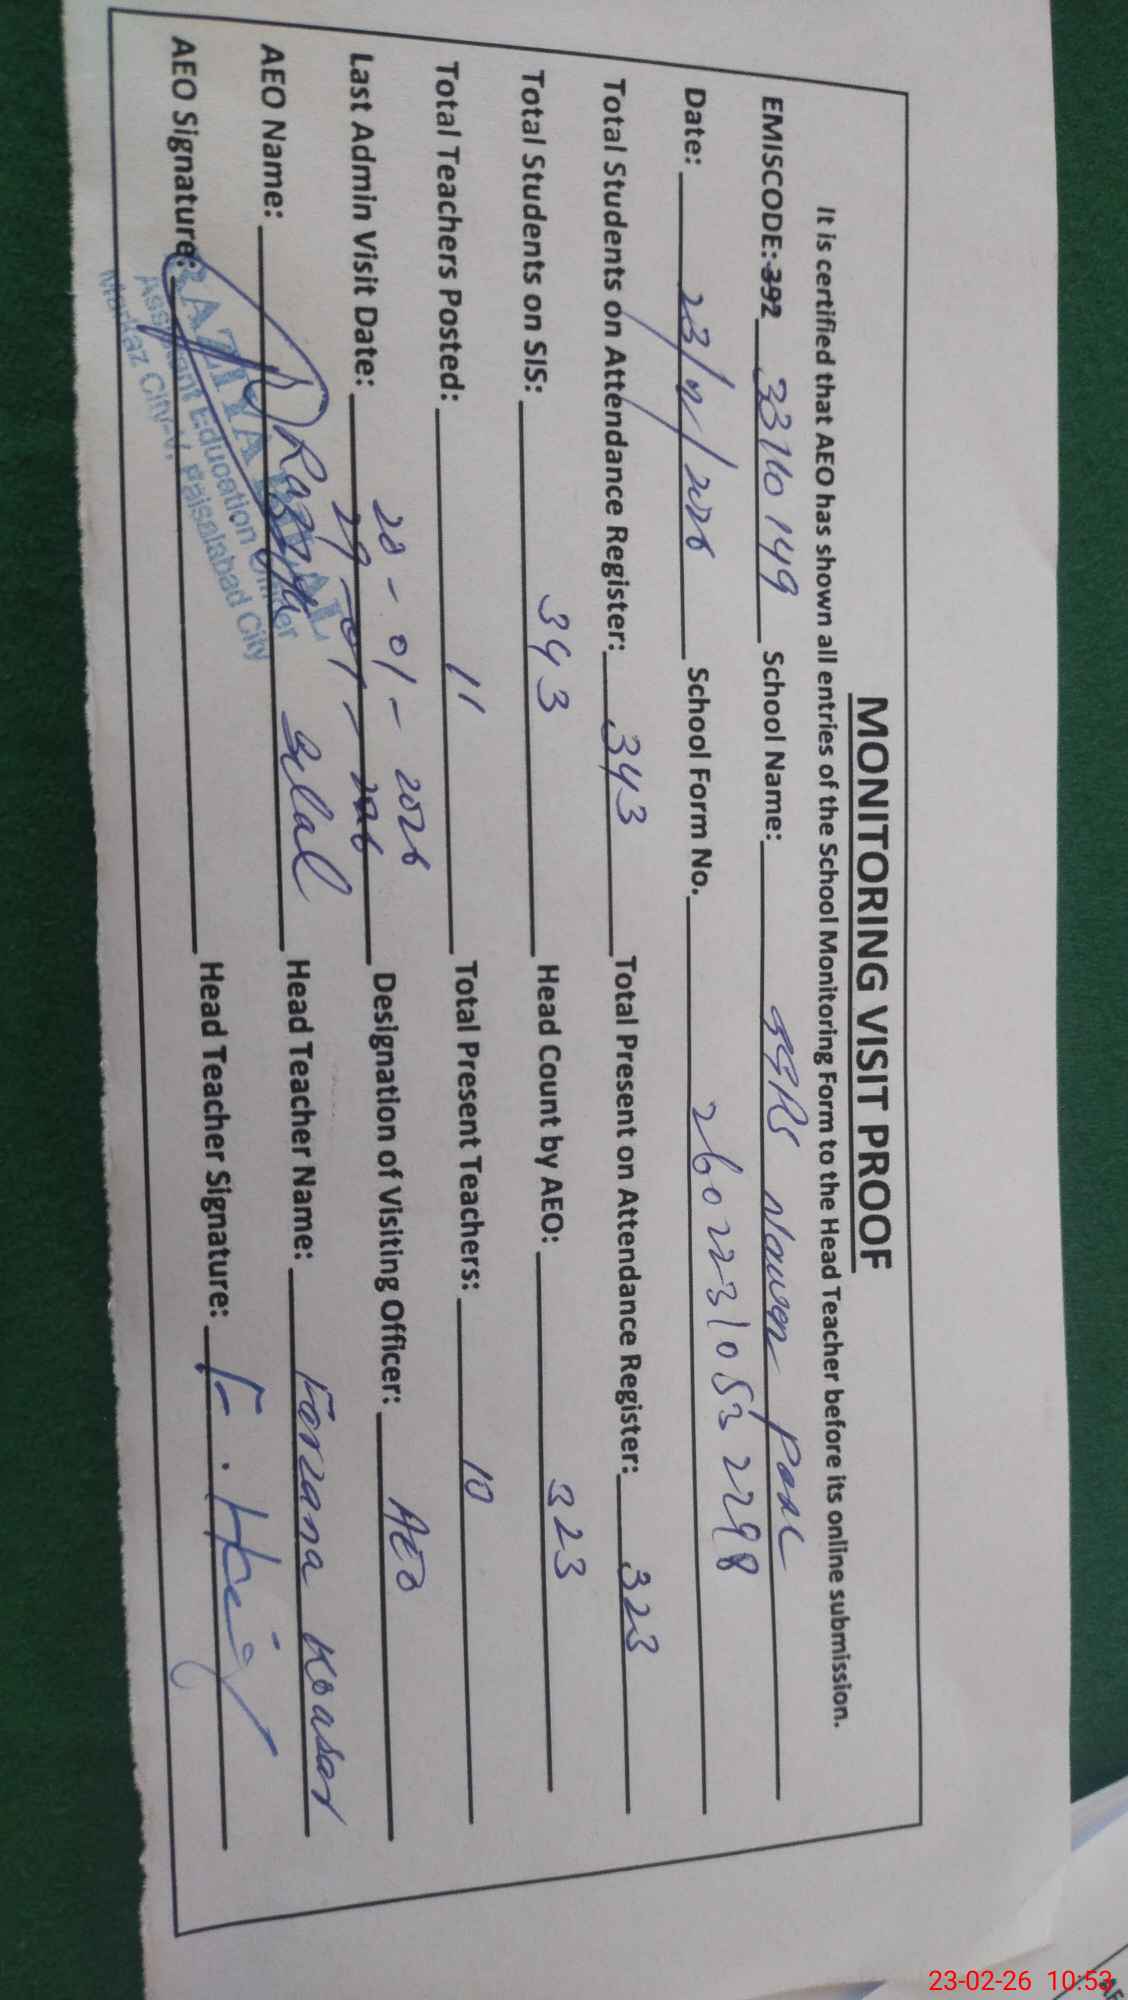 MONITORING VISIT PROOF
It is certified that AEO has shown all entries of the School Monitoring Form to the Head Teacher before its online submission.
EMISCODE: 392 33110149 School Name: GGPS Nawan Panc
Date: 23/2/2026 School Form No. 26022310532298
Total Students on Attendance Register: 343 Total Present on Attendance Register: 323
Total Students on SIS: 343 Head Count by AEO: 323
Total Teachers Posted: 11 Total Present Teachers: 10
28-01-2026
Last Admin Visit Date: 29-01-2026 Designation of Visiting Officer: AEO
AEO Name: Razya Bilal Head Teacher Name: Farzana Koasar
AEO Signature: Head Teacher Signature:
RAZIYA BILAL
Assistant Education Officer
Markaz City-V, Faisalabad City
23-02-26 10:53